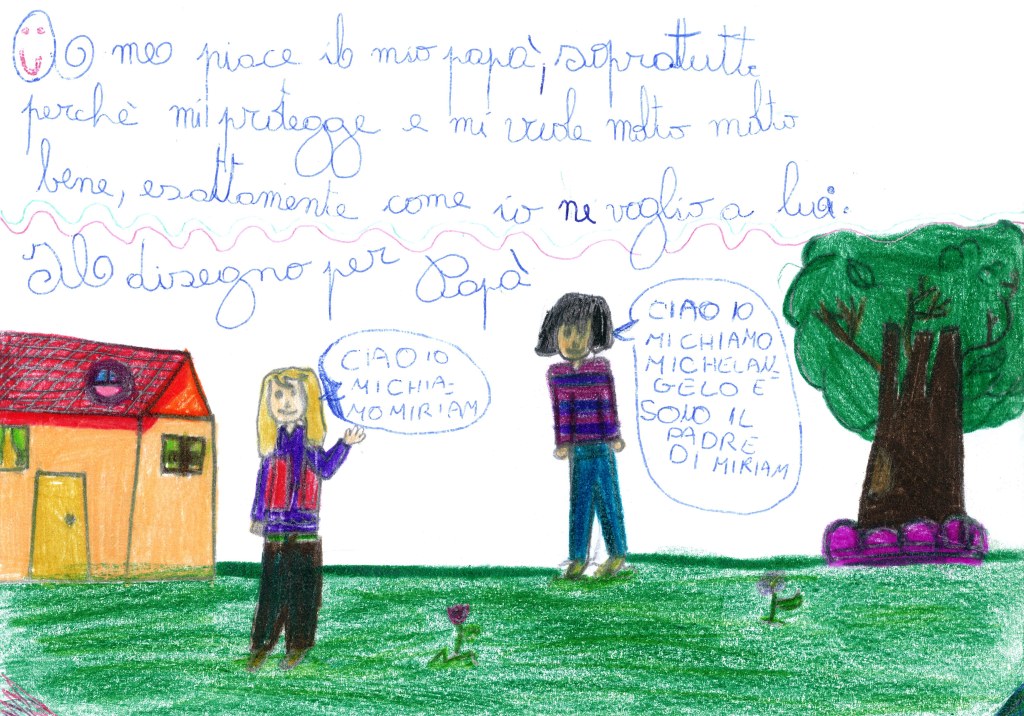 A me piace il mio papà, sopratutto
perchè mi protegge e mi vuole molto molto
bene, esattamente come io ne voglio a lui.
Il disegno per Papà
CIAO IO
MI CHIA-
MO MIRIAM
CIAO IO
MI CHIAMO
MICHELAN-
GELO E
SONO IL
PADRE
DI MIRIAM